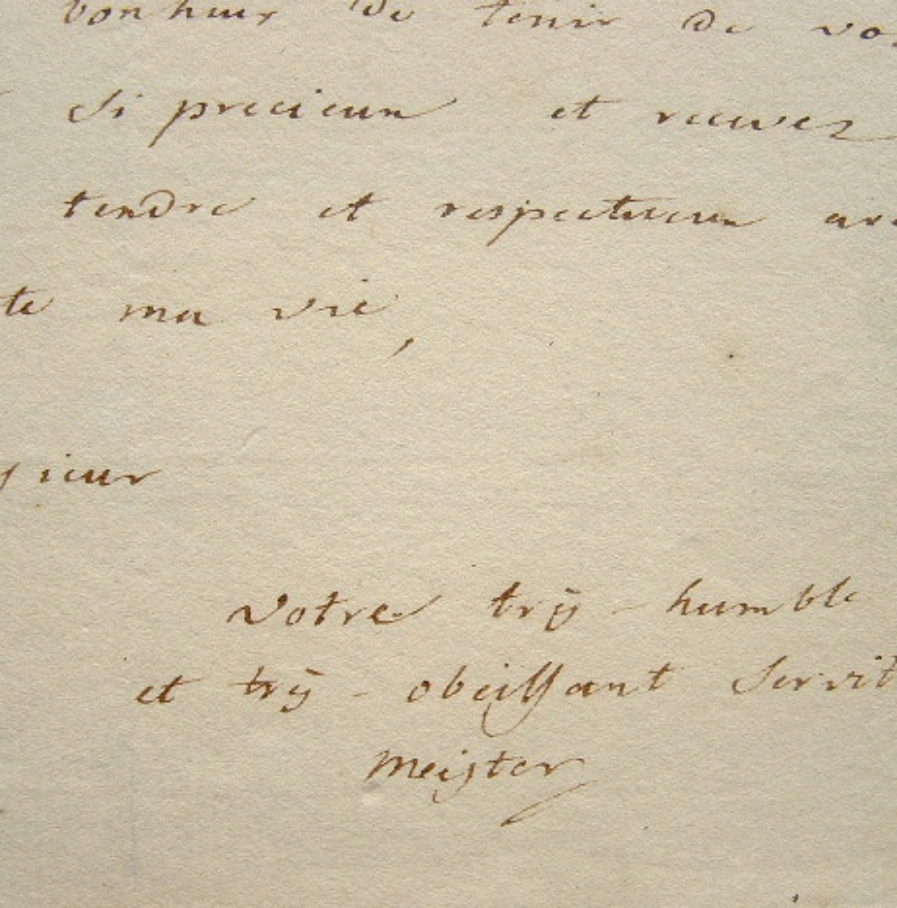 bonheur de tenir de vo
si precieux et recevez
tendre et respectueux
te ma vie,
sieur
votre très-humble
et très-obeissant servit
Meister